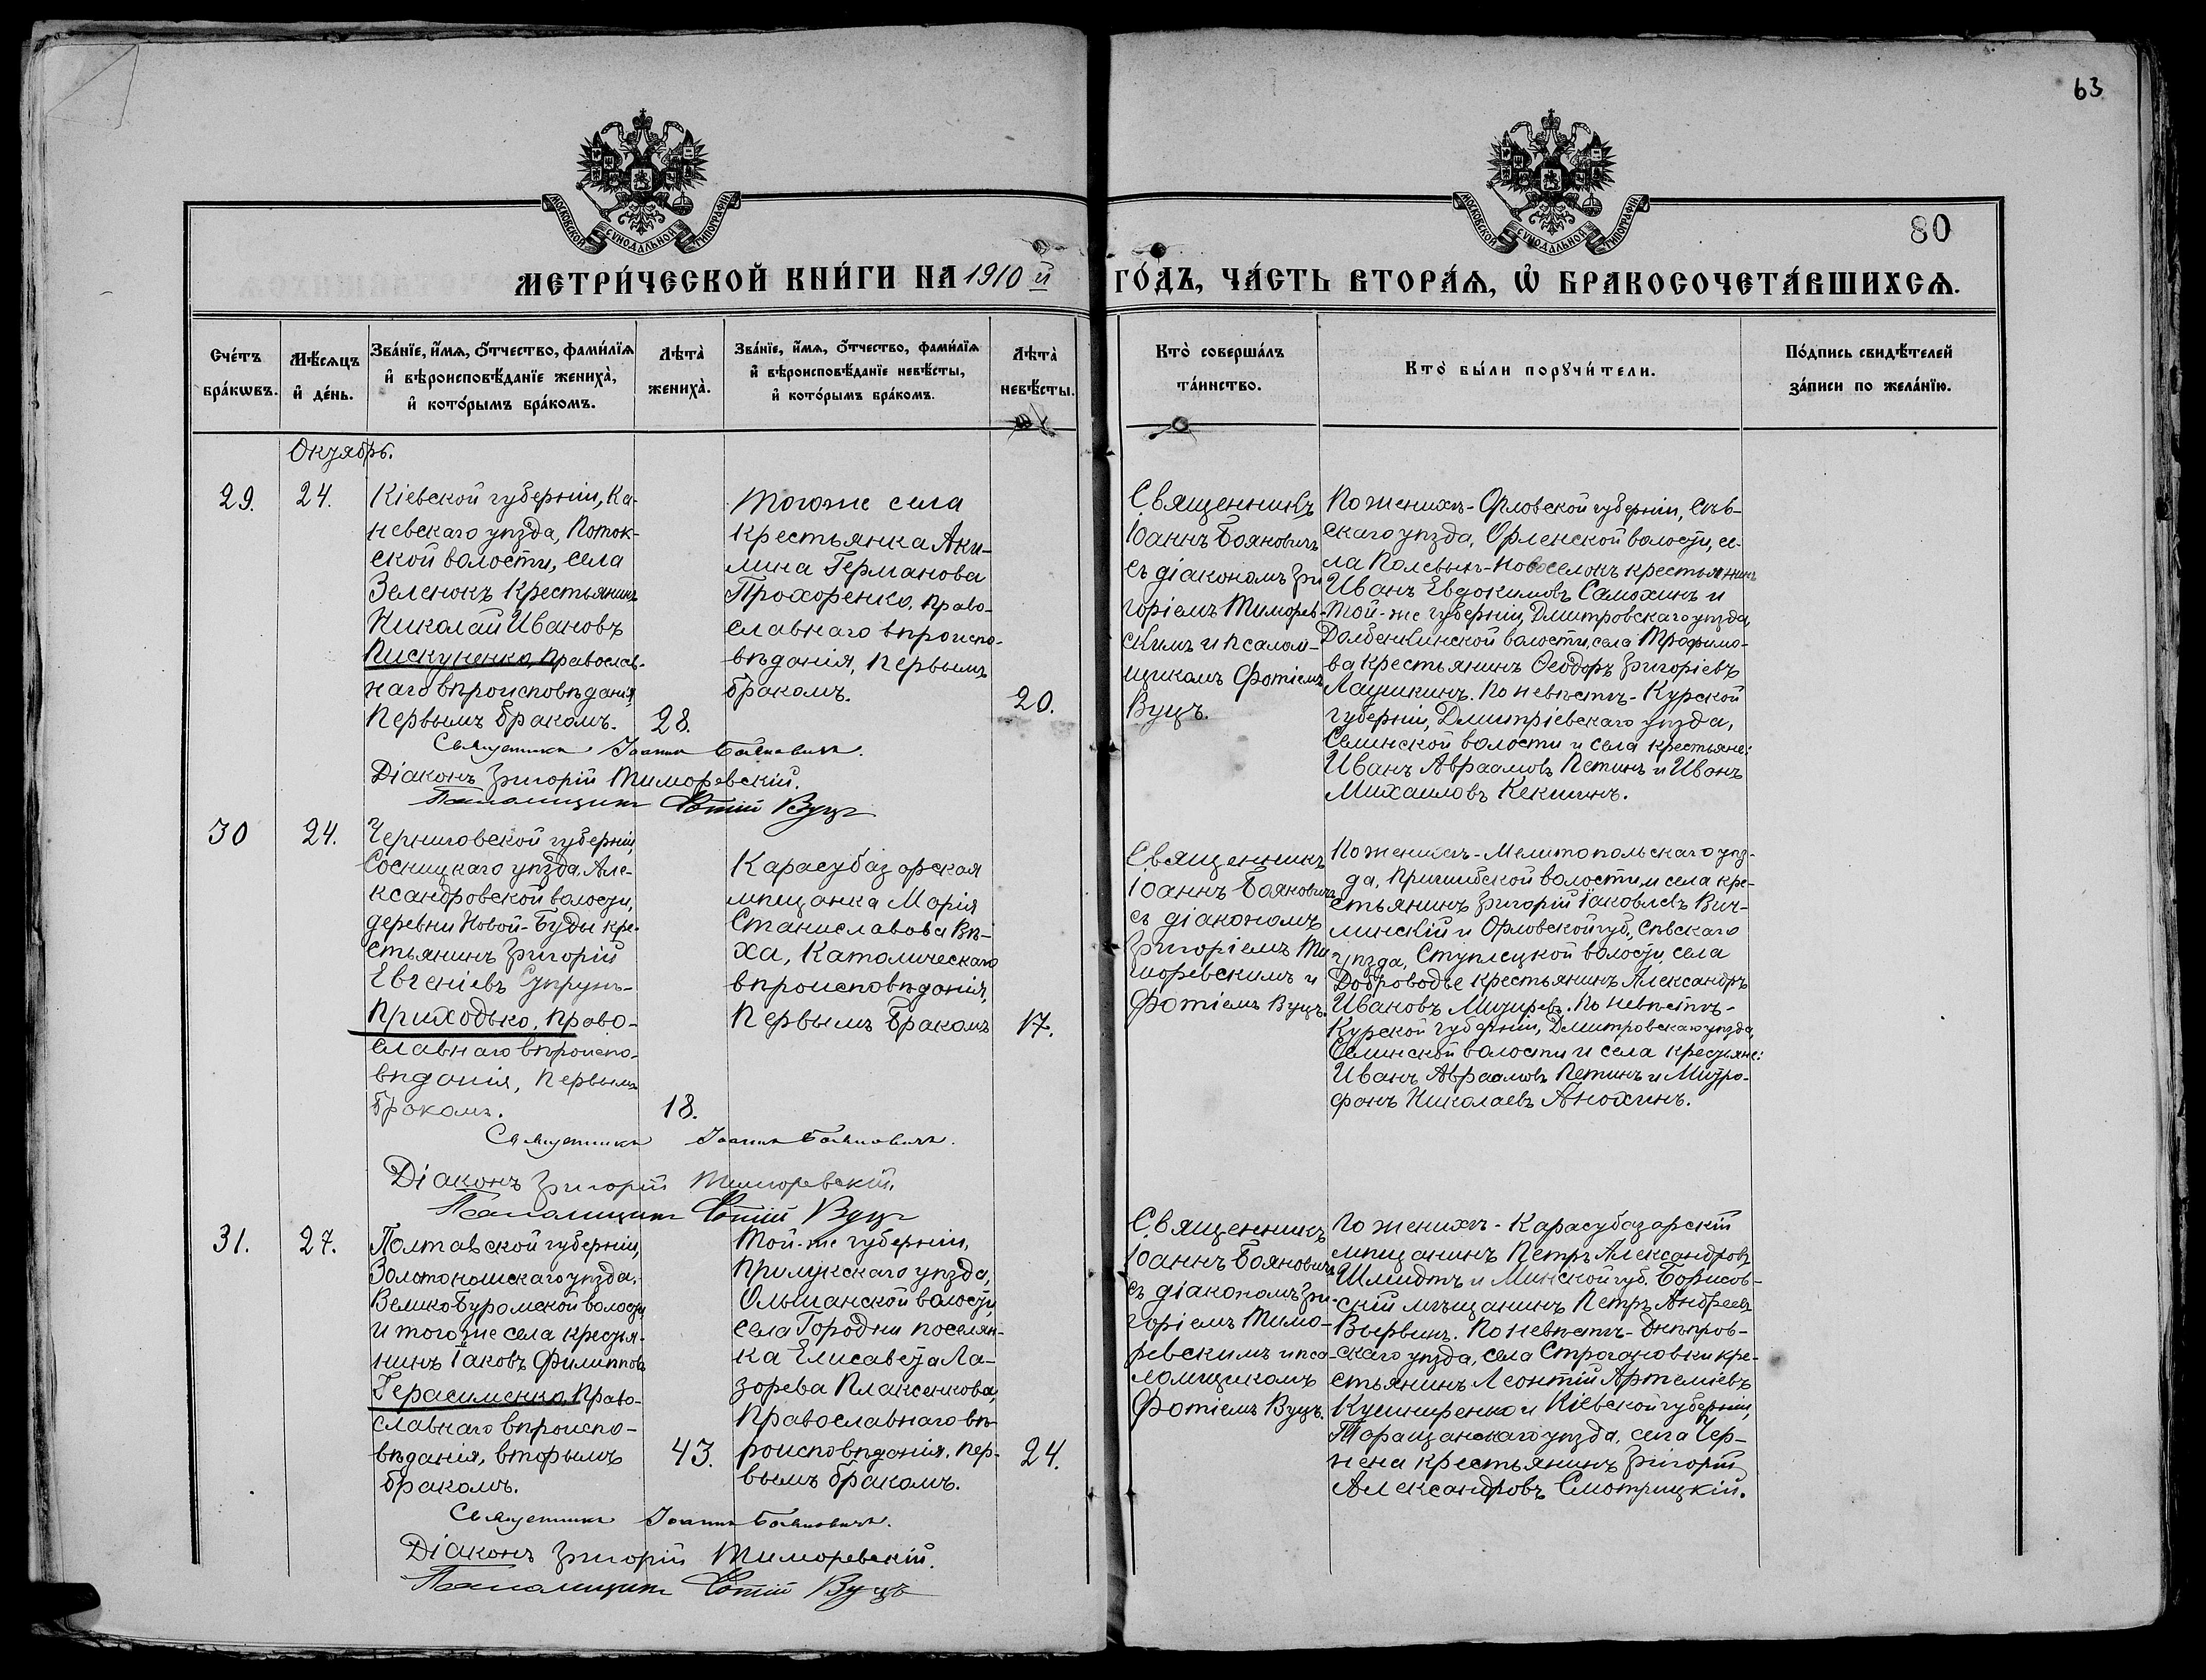 63
МОСКОВСКОЙ СѴНОДАЛЬНОЙ ТИПОГРАФІИ
МОСКОВСКОЙ СѴНОДАЛЬНОЙ ТИПОГРАФІИ
80
МЕТРИ́ЧЕСКОЙ КНИ́ГИ НА 1910 й ГО́ДЪ, ЧА́СТЬ ВТОРА́Ѧ, Ѽ БРАКОСОЧЕТА́ВШИХСѦ.
Сче́тъ
бра́кѡвъ.
Мѣ́сѧцъ
и҆ де́нь.
Зва́нїе, и҆́мѧ, ѻ҆́тчество, фами́лїѧ
и҆ вѣроисповѣ́данїе жениха̀,
и҆ кото́рымъ бра́комъ.
Лѣта̀
жениха̀.
Зва́нїе, и҆́мѧ, ѻ҆́тчество, фами́лїѧ
и҆ вѣроисповѣ́данїе невѣ́сты,
и҆ кото́рымъ бра́комъ.
Лѣта̀
невѣ́сты.
Кто̀ соверша́лъ
та́инство.
Кто̀ бы́ли порꙋчи́тели.
По́дпись свидѣ́телей
за́писи по жела́нїю.
Октябрь.
29.
24.
Кіевской губерніи, Ка-
невскаго уѣзда, Поток-
ской волости, села
Зеленокъ крестьянинъ
Николай Ивановъ
Пискуненко, православ-
наго вѣроисповѣданія,
первымъ бракомъ.
28.
Того-же села
крестьянка Аки-
лина Германова
Прохоренко, право-
славнаго вѣроиспо-
вѣданія, первымъ
бракомъ.
20.
Священникъ
Іоаннъ Бояновичъ
съ діакономъ Гри
горіемъ Тиморев-
скимъ и псалом-
щикомъ Фотіемъ
Вуцъ.
По женихѣ - Орловской губерніи, Сѣв-
скаго уѣзда, Орленской волости, се-
ла Полевыхъ-Новоселокъ крестьянинъ
Иванъ Евдокимовъ Самохинъ и
той-же губерніи, Дмитровскаго уѣзда,
Долбенкинской волости, села Трофимо-
ва крестьянинъ Ѳеодоръ Григоріевъ
Лаушкинъ. По невѣстѣ - Курской
губерніи, Дмитріевскаго уѣзда,
Селинской волости и села крестьяне:
Иванъ Авраамовъ Петинъ и Иванъ
Михаиловъ Кекшинъ.
Священникъ Іоаннъ Бояновичъ.
Діаконъ Григорій Тиморевскій.
Псаломщикъ Фотій Вуцъ
30
24.
Черниговской губерніи,
Сосницкаго уѣзда, Але-
ксандровской волости,
деревни Новой-Буды кре-
стьянинъ Григорій
Евгеніевъ Супрунъ-
Приходько, право-
славнаго вѣроиспо-
вѣданія, первымъ
бракомъ.
18.
Карасубазарская
мѣщанка Марія
Станиславова Вѣ-
ха, католическаго
вѣроисповѣданія,
первымъ бракомъ
17.
Священникъ
Іоаннъ Бояновичъ
съ діакономъ
Григоріемъ Ти
моревскимъ и
Фотіемъ Вуцъ.
По женихѣ - Мелитопольскаго уѣз-
да, Пришибской волости, и села кре-
стьянинъ Григорій Іаковлевъ Вич-
минскій и Орловской губ., Сѣвскаго
уѣзда, Ступецкой волости, села
Доброводье крестьянинъ Александръ
Ивановъ Мизиревъ. По невѣстѣ -
Курской губерніи, Дмитровскаго уѣзда,
Селинской волости и села крестьяне:
Иванъ Авраамовъ Петинъ и Митро-
фанъ Николаевъ Анохинъ.
Священникъ Іоаннъ Бояновичъ.
Діаконъ Григорій Тиморевскій.
Псаломщикъ Фотій Вуцъ
31.
27.
Полтавской губерніи,
Золотоношскаго уѣзда,
Велико-Буромской волости
и того же села крестья-
нинъ Іаковъ Филипповъ
Герасименко, право-
славнаго вѣроиспо-
вѣданія, вторымъ
бракомъ.
43.
Той-же губерніи,
Прилукскаго уѣзда,
Ольшанской волости
села Городни поселян-
ка Елисавета Ла-
зорева Плаксенкова,
православнаго вѣ-
роисповѣданія, пер-
вымъ бракомъ.
24.
Священникъ
Іоаннъ Бояновичъ
съ діакономъ Гри-
горіемъ Тимо-
ревскимъ и пса-
ломщикомъ
Фотіемъ Вуцъ.
По женихѣ - Карасубазарскій
мѣщанинъ Петръ Александровъ
Шмидтъ и Минской губ. Борисов-
скій мѣщанинъ Петръ Андреевъ
Вырвинъ. По невѣстѣ - Днѣпров-
скаго уѣзда, села Строгановки кре-
стьянинъ Леонтій Артеміевъ
Кушниренко и Кіевской губерніи,
Таращанскаго уѣзда, села Чер-
нена крестьянинъ Григорій
Александровъ Смотрицкій.
Священникъ Іоаннъ Бояновичъ.
Діаконъ Григорій Тиморевскій.
Псаломщикъ Фотій Вуцъ